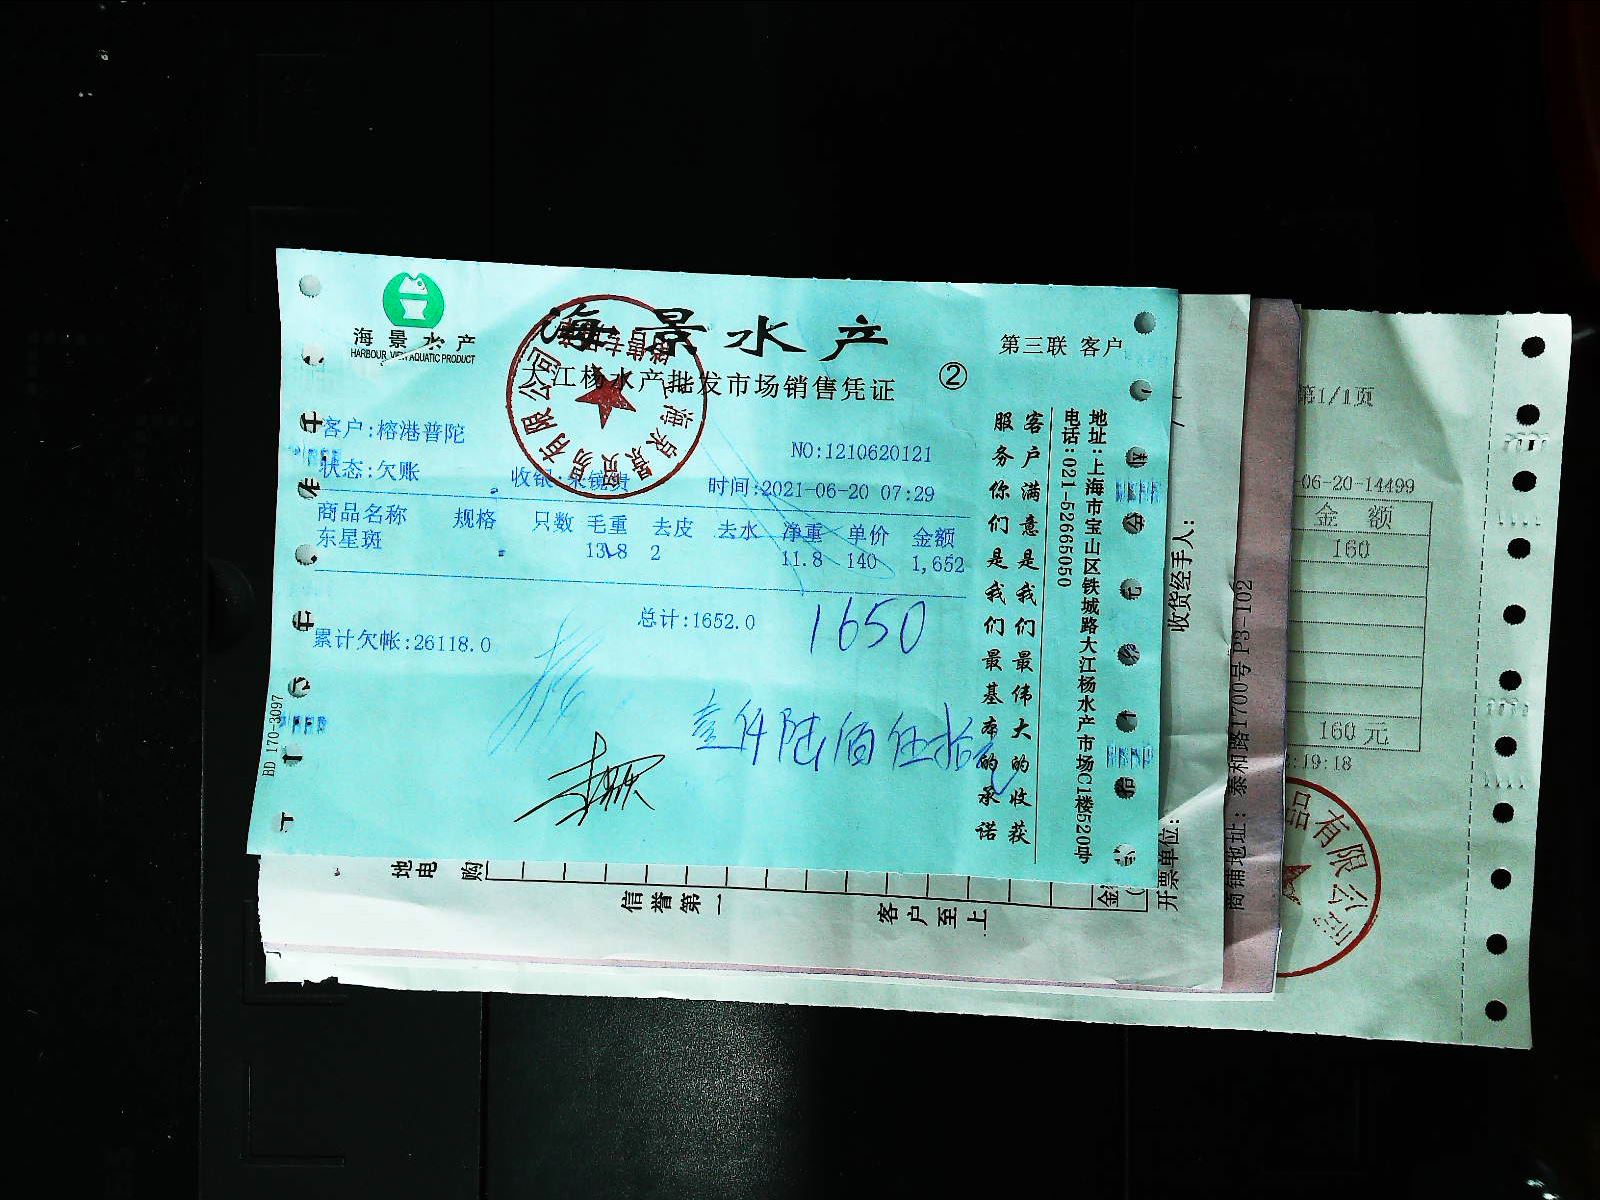 海景水产
HARBOUR VIEW AQUATIC PRODUCT
海景水产
大江杨水产批发市场销售凭证
②
第三联 客户
客户:榕港普陀
NO:1210620121
状态:欠账
收银:
时间:2021-06-20 07:29
商品名称 规格 只数 毛重 去皮 去水 净重 单价 金额
东星斑 13.8 2 11.8 140 1,652
总计:1652.0
1650
累计欠帐:26118.0
壹仟陆佰伍拾元
BD 170-3097
客户满意是我们最伟大的收获
服务你们是我们最基本的承诺
地址:上海市宝山区铁城路大江杨水产市场C1楼520号
电话:021-52665050
有限公司
销售专用章
收货经手人:
开票单位:
地
电
购
信誉第一
客户至上
金
商铺地址: 泰和路1700号 P3-102
第1/1页
-06-20-14499
金 额
160
160元
:19:18
品有限公司